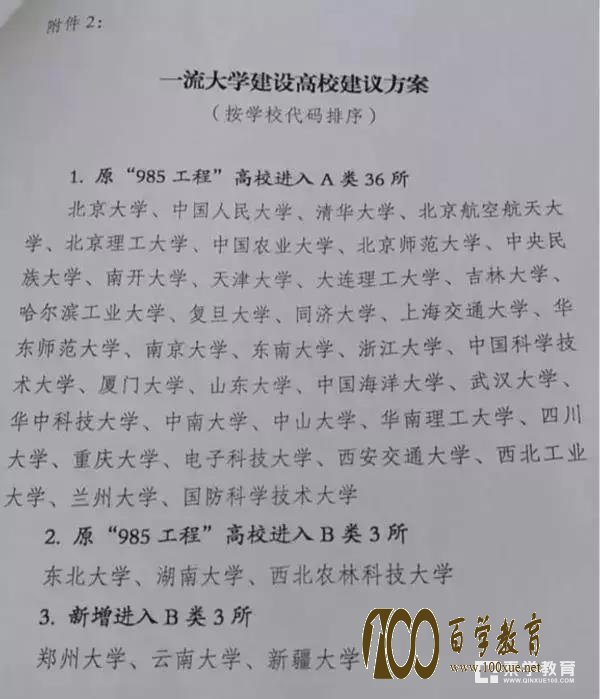 附件2:
一流大学建设高校建议方案
（按学校代码排序）
1. 原“985工程”高校进入A类36所
北京大学、中国人民大学、清华大学、北京航空航天大
学、北京理工大学、中国农业大学、北京师范大学、中央民
族大学、南开大学、天津大学、大连理工大学、吉林大学、
哈尔滨工业大学、复旦大学、同济大学、上海交通大学、华
东师范大学、南京大学、东南大学、浙江大学、中国科学技
术大学、厦门大学、山东大学、中国海洋大学、武汉大学、
华中科技大学、中南大学、中山大学、华南理工大学、四川
大学、重庆大学、电子科技大学、西安交通大学、西北工业
大学、兰州大学、国防科学技术大学
2. 原“985工程”高校进入B类3所
东北大学、湖南大学、西北农林科技大学
3. 新增进入B类3所
郑州大学、云南大学、新疆大学
100百学教育
www.100xue.net
学教育
WWW.QINXUE100.COM